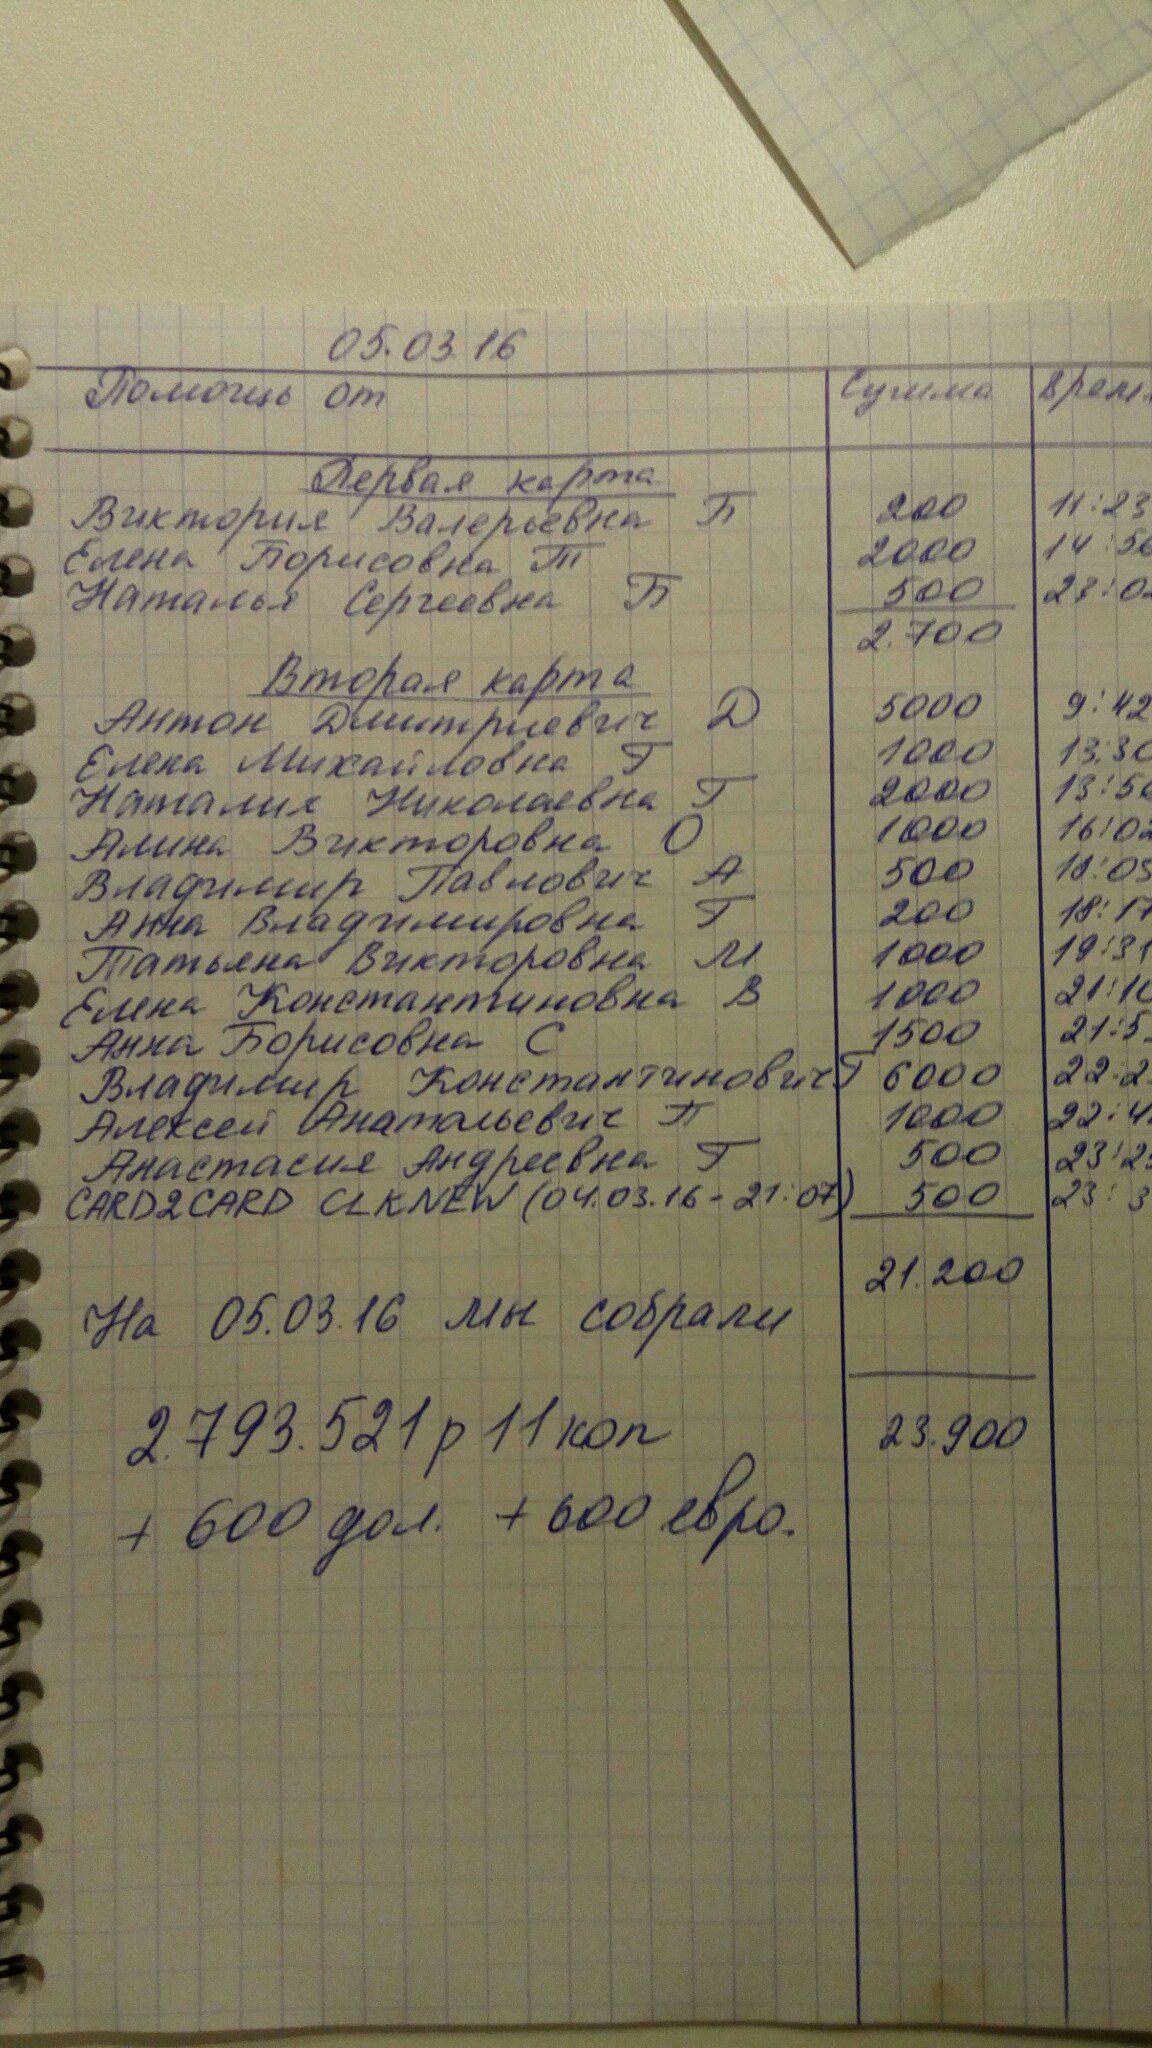 05.03.16
Помощь от Сумма Время
Первая карта
Виктория Валерьевна П 200 11:23
Елена Борисовна Т 2000 14:56
Наталья Сергеевна П 500 23:0
2.700
Вторая карта
Антон Дмитриевич Д 5000 9:42
Елена Михайловна Г 1000 13:30
Наталия Николаевна Г 2000 13:56
Алина Викторовна О 1000 16:02
Владимир Павлович А 500 18:05
Анна Владимировна Г 200 18:17
Татьяна Викторовна М 1000 19:31
Елена Константиновна В 1000 21:10
Анна Борисовна С 1500 21:5
Владимир Константинович Г 6000 22:2
Алексей Анатальевич П 1000 22:4
Анастасия Андреевна Г 500 23:2
CARD2CARD CLKNEW (04.03.16 - 21:07) 500 23:3
21.200
На 05.03.16 мы собрали
2.793.521 р 11 коп 23.900
+ 600 дол. + 600 евро.